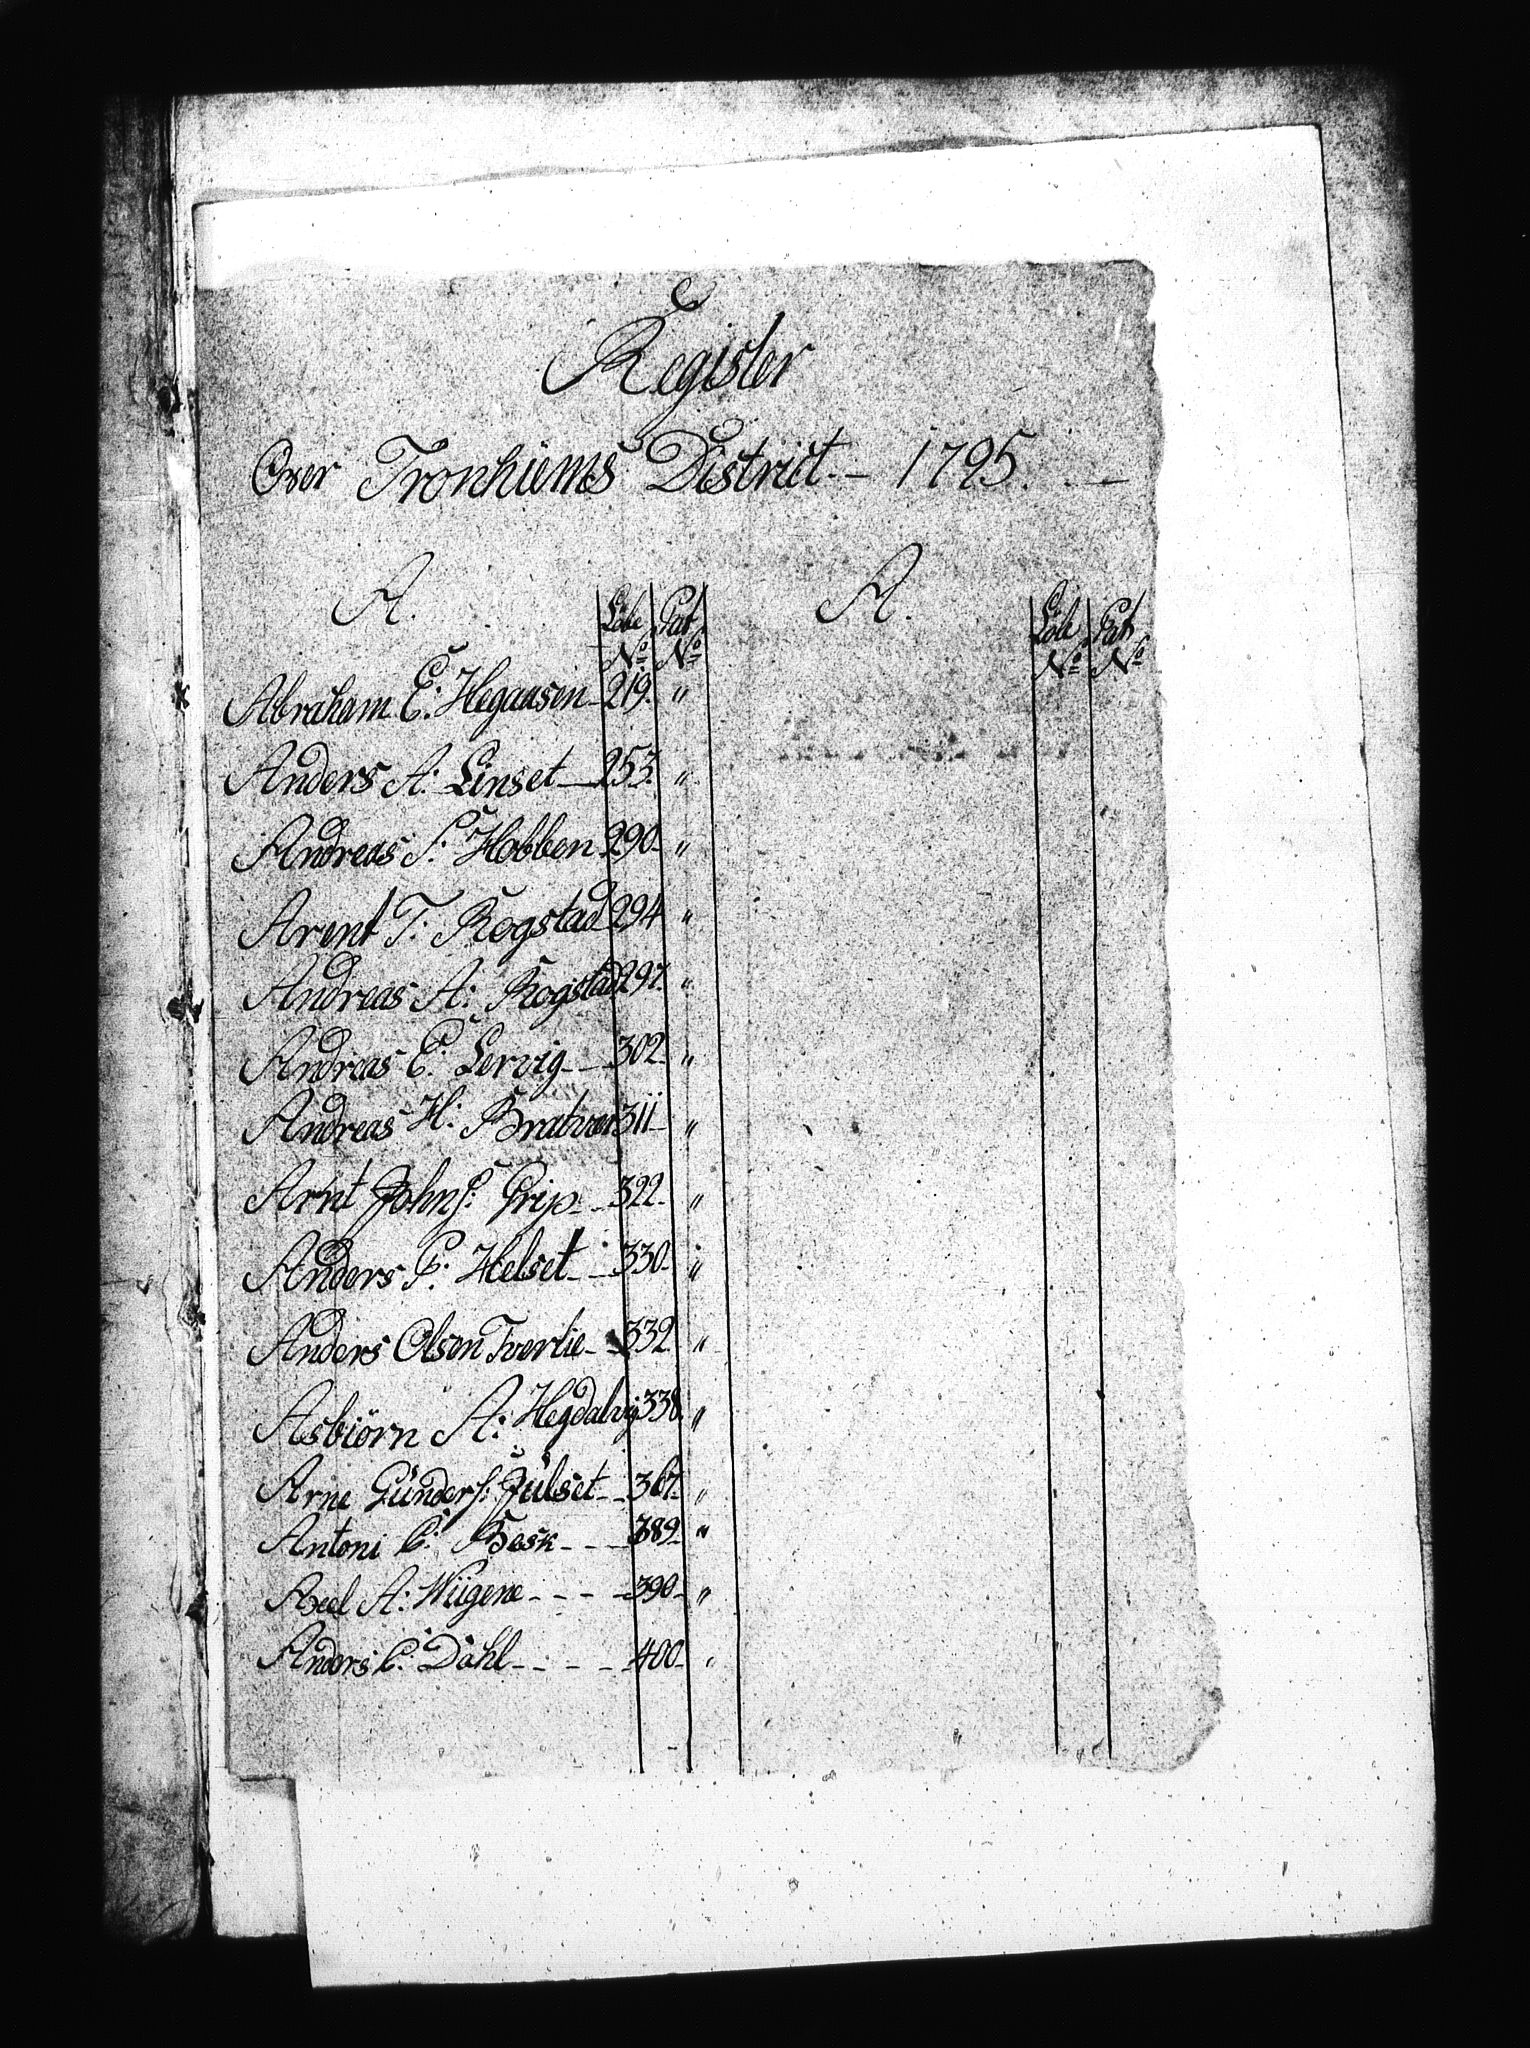 Register
Over Tronhiems District. - 1795. . -
A. Löbe No Pat No A. Löbe No Pat No
Abraham E: Hegaasen 219. "
Anders A: Linset 253. "
Andreas S: Hobben 290 "
Arent T: Rogstad 294 "
Andreas A: Rogstad 297. "
Andreas E: Lervig 302 "
Andreas H: Bratvær 311 "
Arnt JohnS: Grip 322 "
Anders P: Helset 330 "
Anders Olsen Tverlie 332 "
Asbiörn A: Hegdalvig 338 "
Arne GünderS: Jülset 367. "
Antoni C: Besk 389 "
Axel A: Wügene 390 "
Anders C: Dahl 400 "